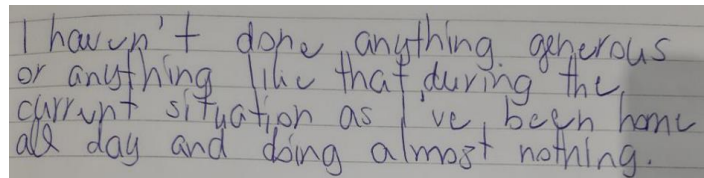 I haven't done anything generous
or anything like that during the
current situation as I've been home
all day and doing almost nothing.